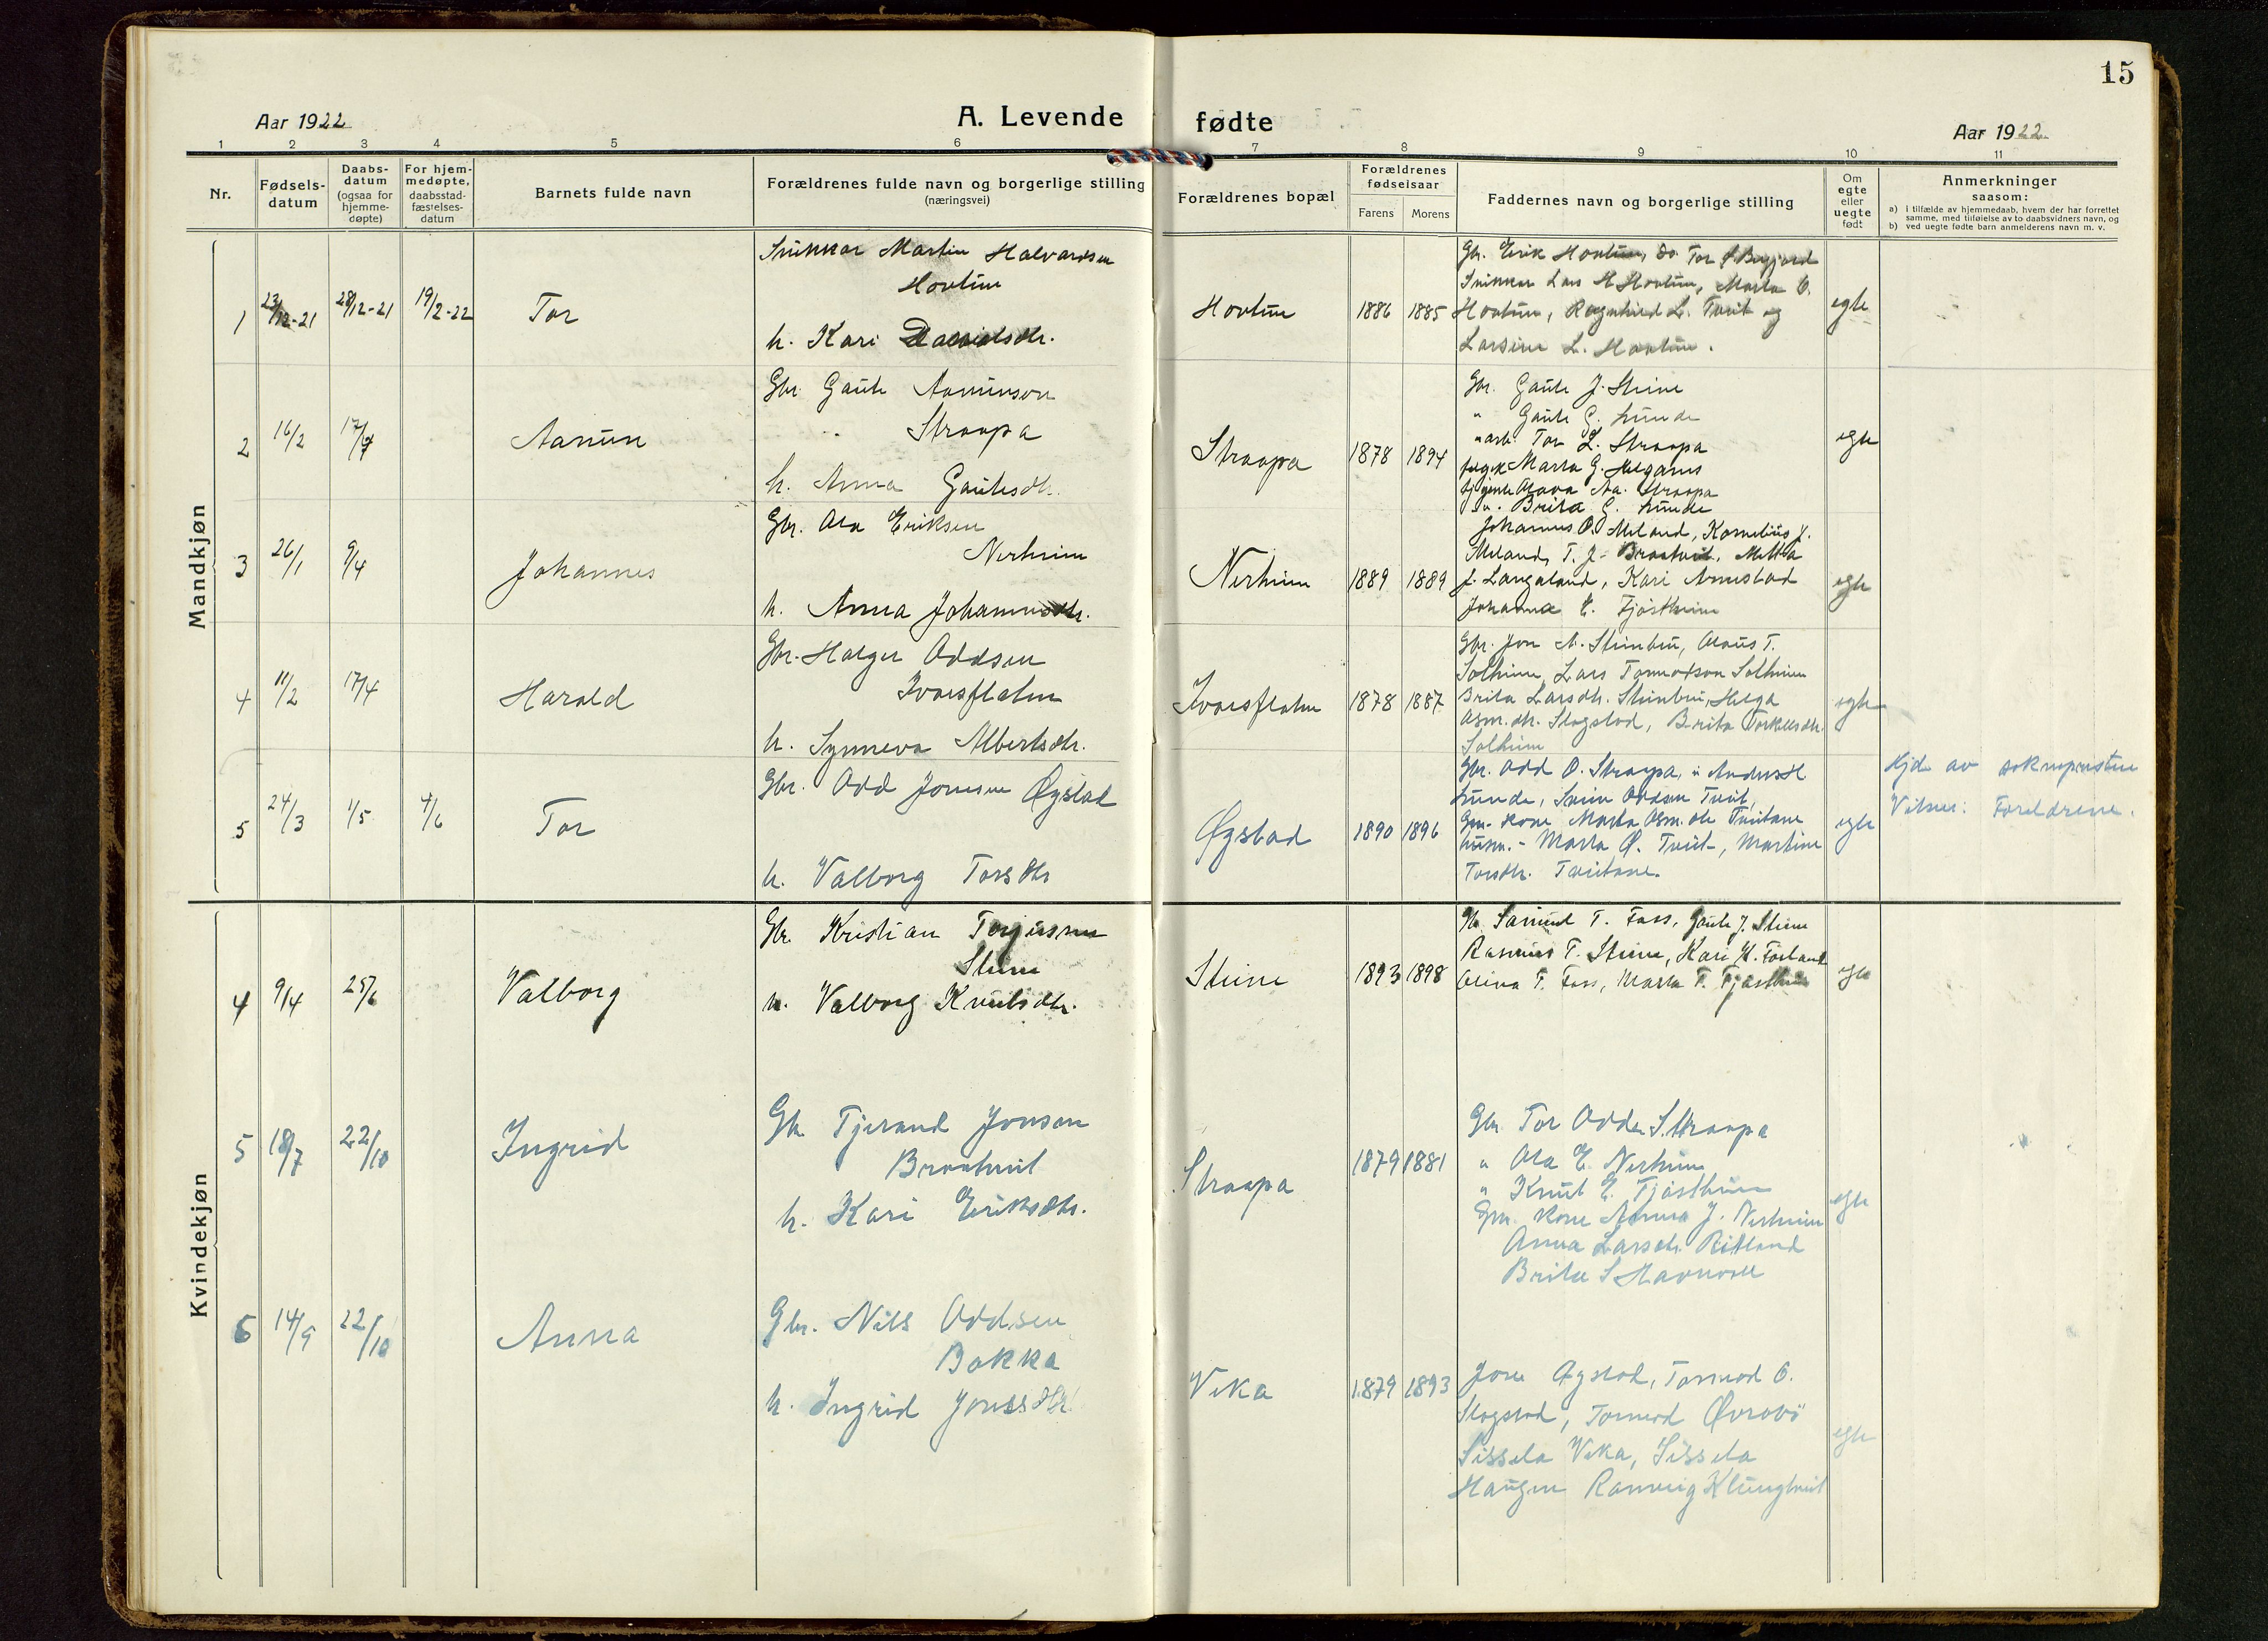 15
Aar 1922
A. Levende fødte
Aar 1922
1 2 3 4 5 6 7 8 9 10 11
Nr.
Fødsels-
datum
Daabs-
datum
(ogsaa for
hjemme-
døpte)
For hjem-
medøpte,
daabsstad-
fæstelses-
datum
Barnets fulde navn
Forældrenes fulde navn og borgerlige stilling
(næringsvei)
Forældrenes bopæl
Forældrenes
fødselsaar
Farens Morens
Faddernes navn og borgerlige stilling
Om
egte
eller
uegte
født
Anmerkninger
saasom:
a) i tilfælde av hjemmedaab, hvem der har forrettet
samme, med tilføielse av to daabsvidners navn, og
b) ved uegte fødte barn anmelderens navn m. v.
Mandkjøn
1 23/12-21 28/12-21 19/2-22 Tor
Snikkar Martin Halvardsen
Hovtun
h. Kari Davidsdtr.
Hovtun 1886 1885
Gbr. Erik Hovtun, Do Tor
Snikkar Lars H. Hovtun, Marta O.
Hovtun, Ragnhild L. Tveit og
Larsine L. Hovtun.
egte
2 16/2 17/4 Aamun
Gbr. Gaute Aamunson
Straapa
h. Anna Gautesdtr.
Straapa 1878 1894
Gbr. Gaute J. Steine
" Gaute G. Lunde
" arb. Tor L. Straapa
Marta G. Helganes
Aa. Straapa
" Brita G. Lunde
egte
3 26/1 9/4 Johannes
Gbr. Ola Eriksen
Nerheim
h. Anna Johannesdtr.
Nerheim 1889 1889
Johannes O. Meland, Kornelius J.
Meland, T. J. Braatveit, Metta
J. Langaland, Kari Armestad
Johanna E. Fjøstheim
egte
4 11/2 17/4 Harald
Gbr. Holger Oddsen
Ivarsflaten
h. Synneva Albertsdtr.
Ivarsflaten 1878 1887
Gbr. Jon N. Steinbru, Olaus T.
Solheim, Lars Tormodson Solheim
Brita Larsdtr. Steinbru, Helga
Asm.dtr. Slogstad, Brita Torkellsdtr.
Solheim
egte
5 24/3 1/5 4/6 Tor
Gbr. Odd Jonsen Øgstad
h. Valborg Torsdtr
Øgstad 1890 1896
Gbr. Odd O. Straapa, " Anders H
Lunde, Svein Oddsen Tveit,
Gm. kone Marta Asm.dtr Tveitane
husm. - Marta Ø. Tveit, Martine
Torsdtr. Tveitane.
egte
Hjd. av soknepresten
Vitner: Foreldrene.
Kvindekjøn
4 9/4 25/6 Valborg
Gbr. Kristian Torjussen
Steine
h. Valborg Knutsdtr.
Steine 1893 1898
Gbr. Samuel T. Foss, Gaute J. Steine
Rasmus T. Steine, Kari K. Førland
Olina T. Foss, Marta T. Fjøstheim
egte
5 18/7 22/10 Ingrid
Gbr Tjerand Jonsen
Braatveit
h. Kari Eriksdtr.
Straapa 1879 1881
Gbr Tor Odds. Straapa
" Ola E. Nerheim
" Knut E. Fjøstheim
Gm. kone Anna J. Nerheim
Anna Larsdtr. Ritland
Brita S.
egte
6 14/9 22/10 Anna
Gbr. Nils Oddsen
Bakka
h. Ingrid Jonsdtr
Vika 1879 1893
Jone Øgstad, Tormod O.
Slogstad, Tormod Øvrabø
Sissela Vika, Sissela
Haugen Ranveig Klungtveit
egte